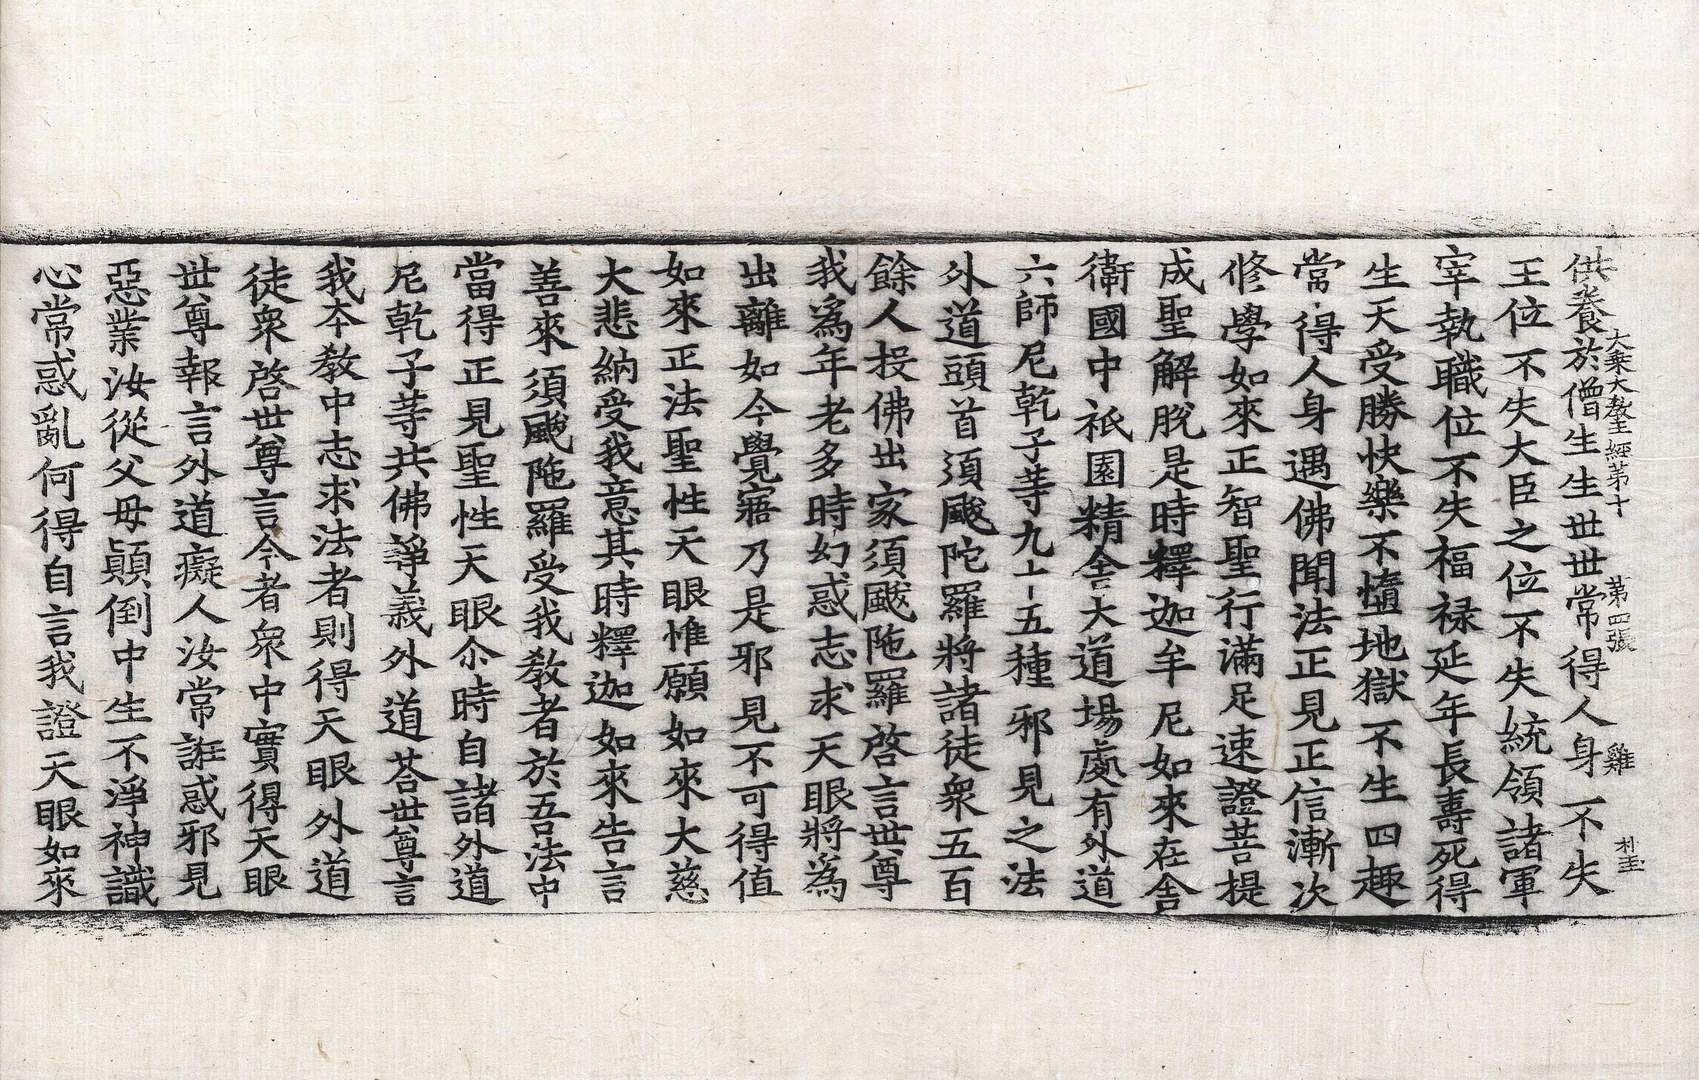 大乘大教王經第十 第四張 雞
供養於僧生生世世常得人身不失
王位不失大臣之位不失統領諸軍
宰執職位不失福禄延年長壽死得
生天受勝快樂不墮地獄不生四趣
當得人身遇佛聞法正見正信漸次
修學如來正智聖行滿足速證菩提
成聖解脫是時釋迦牟尼如來在舍
衛國中祇園精舍大道場處有外道
六師尼乾子等九十五種邪見之法
外道頭首須颰陀羅將諸徒衆五百
餘人投佛出家須颰陁羅啓言世尊
我為年老多時幻惑志求天眼將為
出離如今覺寤乃是邪見不可得值
如來正法聖性天眼惟願如來大慈
大悲納受我意其時釋迦如來告言
善來須颰陁羅受我教者於吾法中
當得正見聖性天眼尒時自諸外道
尼乾子等共佛諍義外道荅世尊言
我本教中志求法者則得天眼外道
徒衆啓世尊言今者衆中實得天眼
世尊報言外道癡人汝常誑惑邪見
惡業汝從父母顚倒中生不淨神識
心常惑亂何得自言我證天眼如來